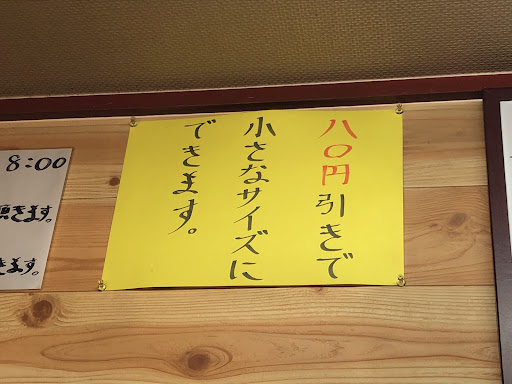 八〇円引きで
小さなサイズに
できます。
8:00
頂きます。
きます。